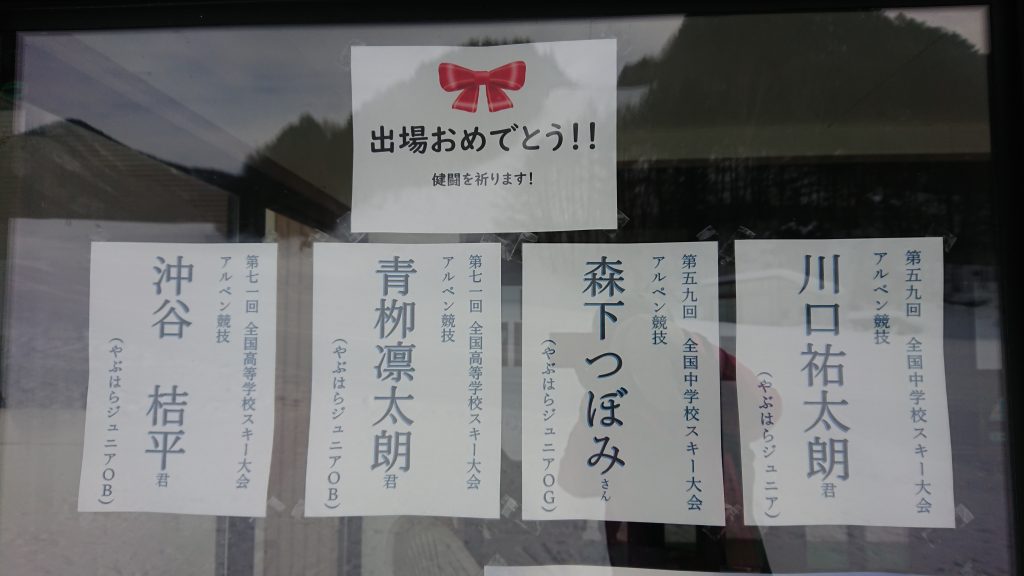 出場おめでとう!!
健闘を祈ります!
第五九回 全国中学校スキー大会
アルペン競技
川口祐太朗君
(やぶはらジュニア)
第五九回 全国中学校スキー大会
アルペン競技
森下つぼみさん
(やぶはらジュニアOG)
第七一回 全国高等学校スキー大会
アルペン競技
青柳凛太朗君
(やぶはらジュニアOB)
第七一回 全国高等学校スキー大会
アルペン競技
沖谷 桔平君
(やぶはらジュニアOB)